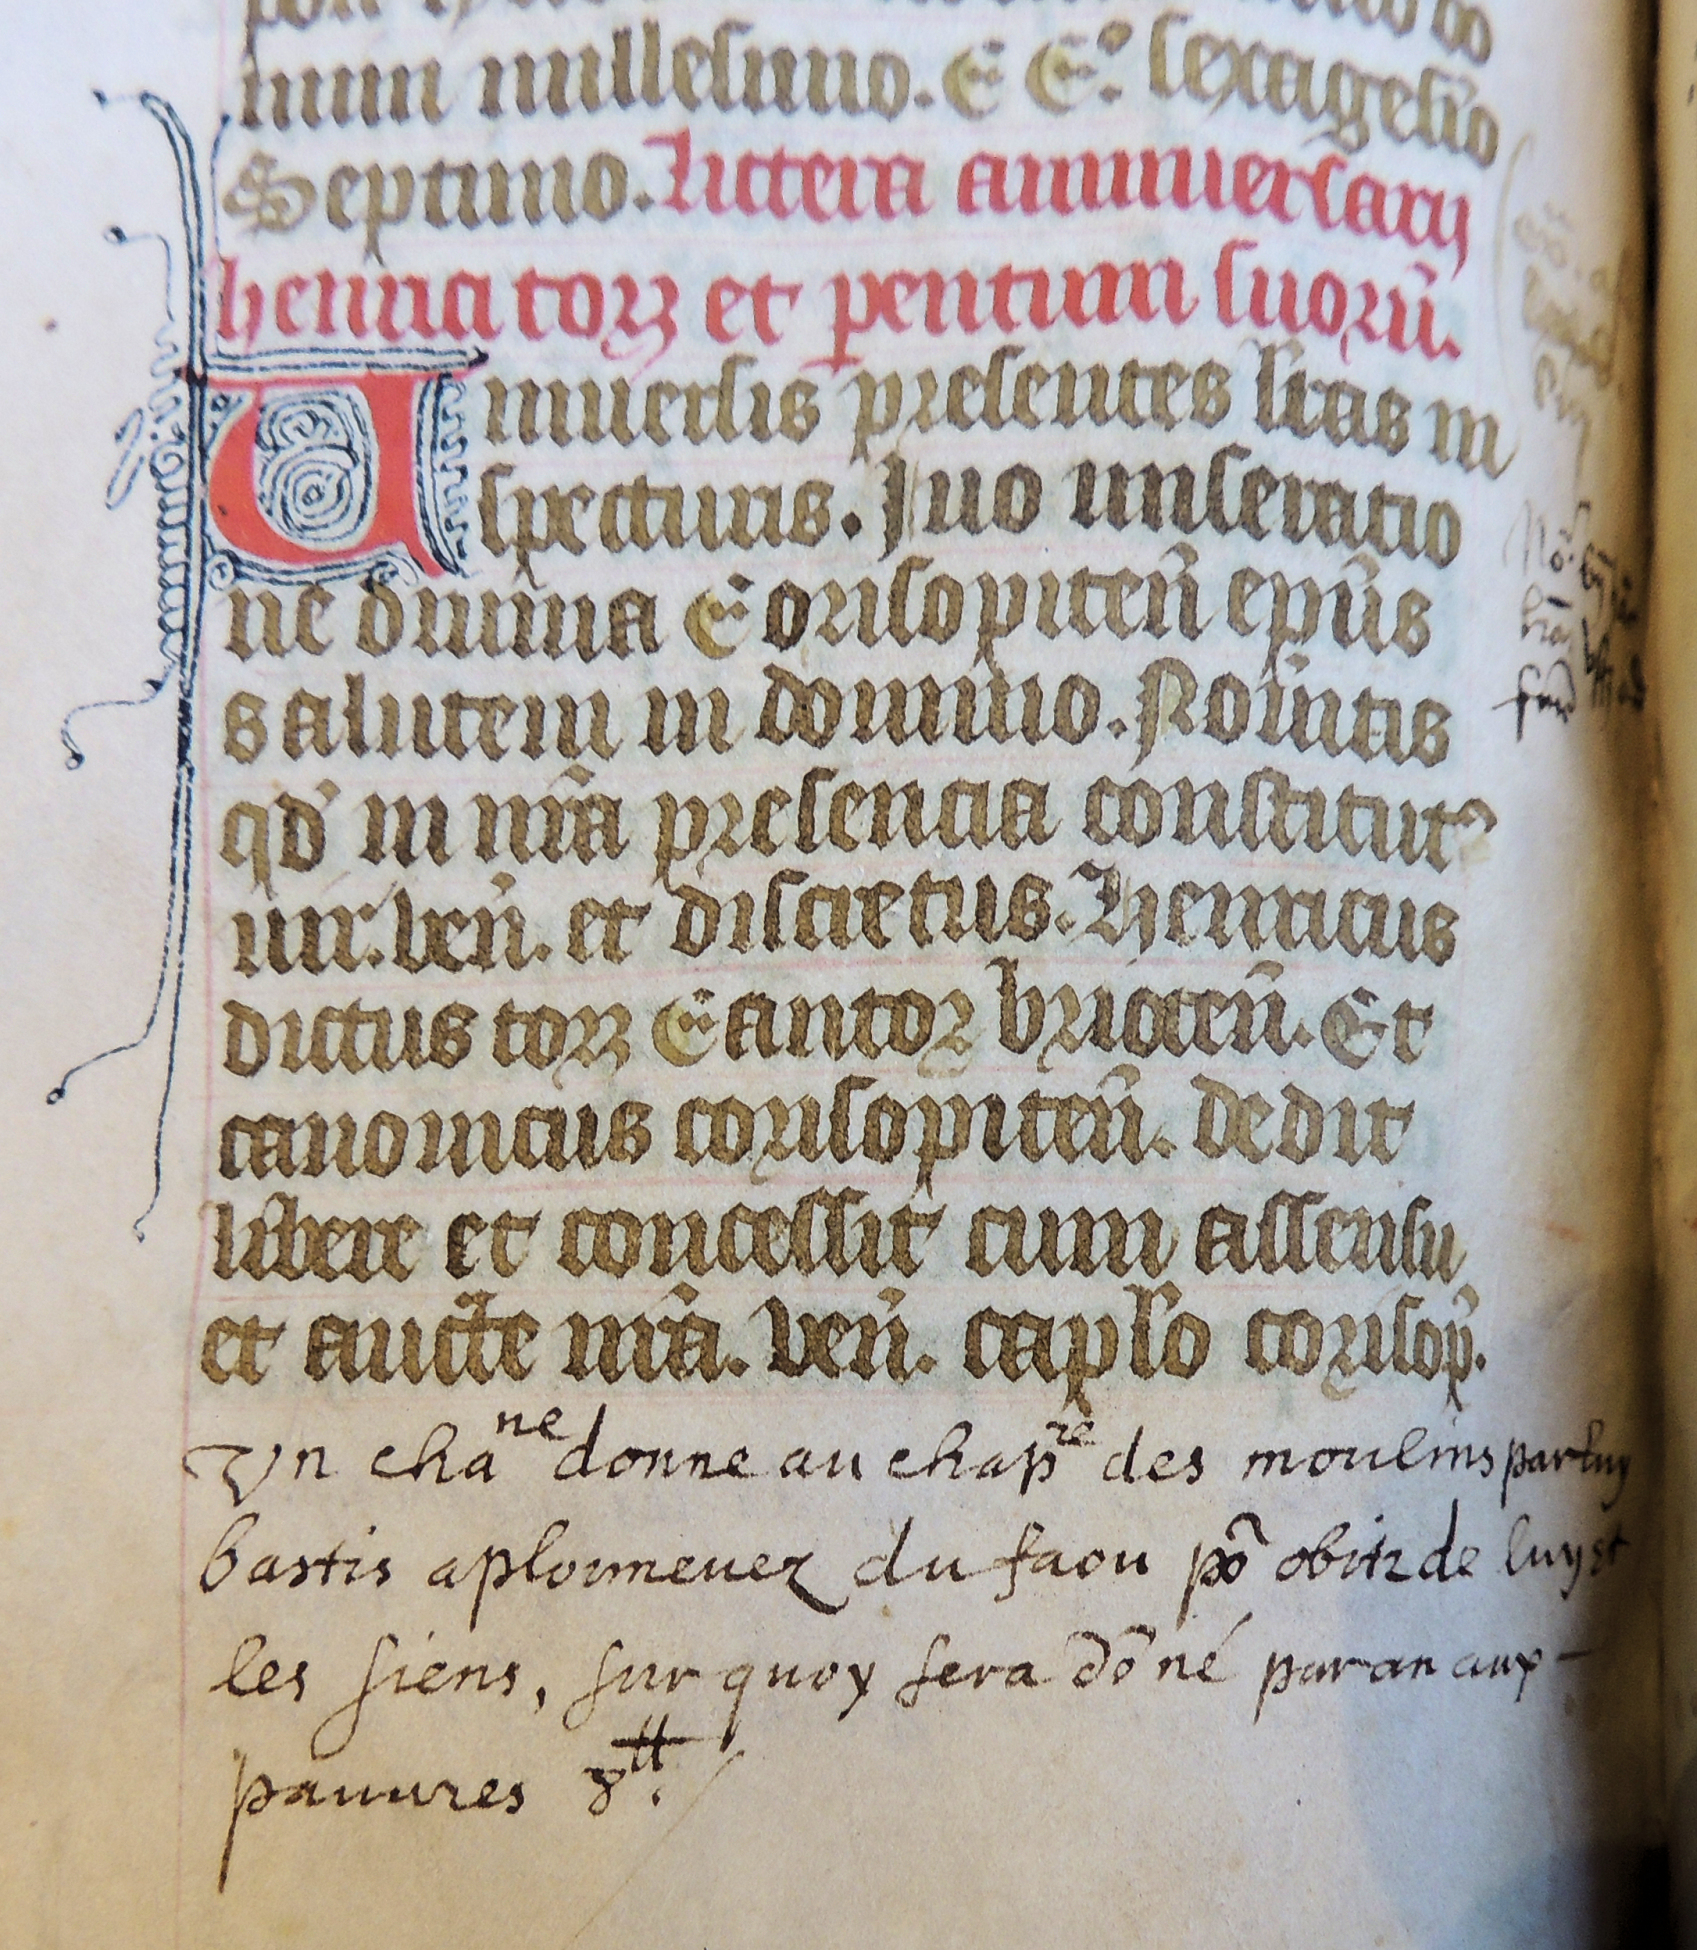 num millesimo. C C.º sexagesĩo
Septimo. Littera anniuersarij
henrici torz et parentum suorũ.
Uniuersis presentes lr̃as in
specturis. Juo miseratio
ne diuina Corisopiteñ ep̃us
salutem in domino. Noũitis
qđ in nr̃a presencia constitut9
uir. veñ. et discretus. Henricus
dictus torz Cantor briaceñ. Et
canonicus corisopiteñ. dedit
libere et concessit cum assensu
et auctt̃e nr̃a. veñ. capl̃o corisop̃.
Vn chaⁿᵉ donne au chapʳᵉ des moulins par luy
bastis aploumeuez du faou põ obitz de luy et
les siens, sur quoy sera dõné par an aux
pauures 8ᵗᵗ.